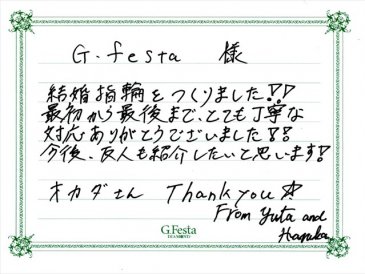 G.festa 様
結婚指輪をつくりました!!
最初から最後まで、とても丁寧な
対応ありがとうございました!!
今後、友人も紹介したいと思います!
オカダさん Thank you☆
From Yuta and
Haruka
G.Festa
DIAMOND